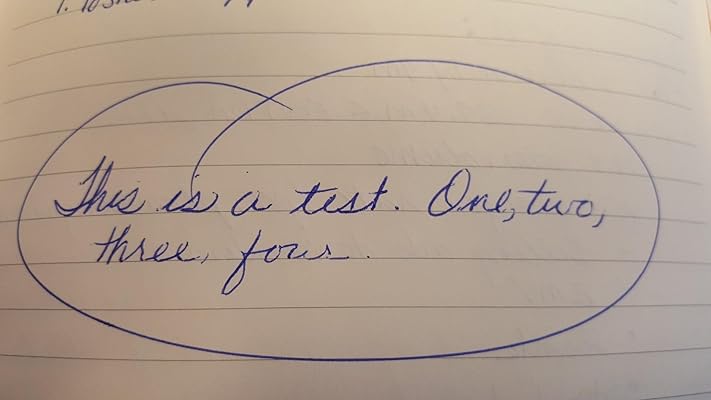 This is a test. One, two,
three, four.